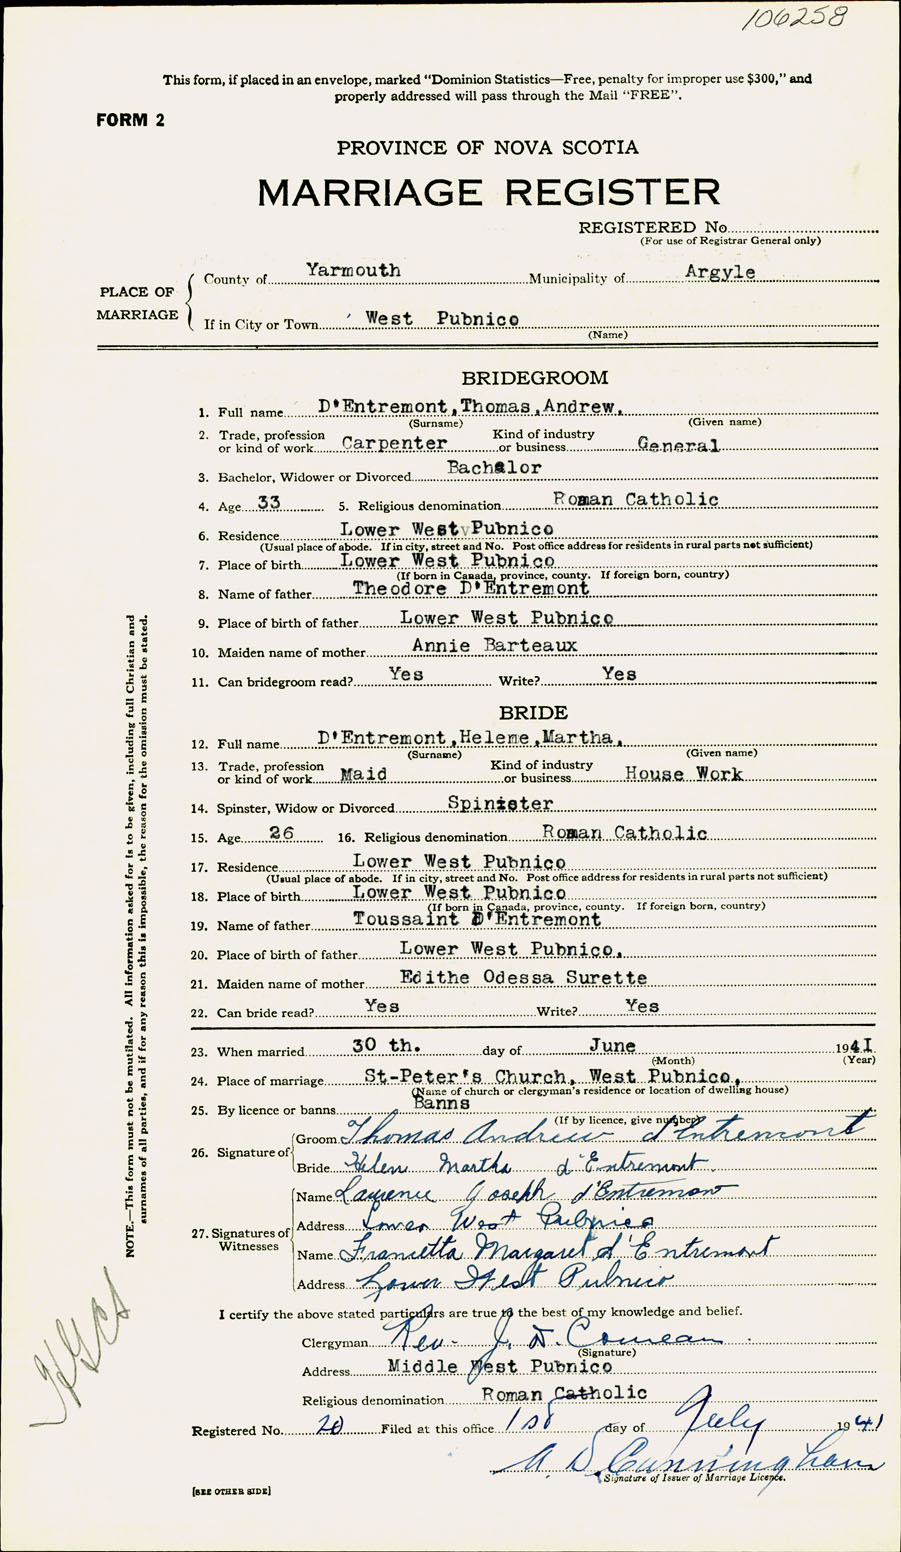 106258
This form, if placed in an envelope, marked “Dominion Statistics—Free, penalty for improper use $300,” and
properly addressed will pass through the Mail “FREE”.
FORM 2
PROVINCE OF NOVA SCOTIA
MARRIAGE REGISTER
REGISTERED No
(For use of Registrar General only)
PLACE OF MARRIAGE
County of Yarmouth Municipality of Argyle
If in City or Town West Pubnico
(Name)
BRIDEGROOM
1. Full name D'Entremont, Thomas, Andrew,
(Surname) (Given name)
2. Trade, profession Kind of industry
or kind of work Carpenter or business General
3. Bachelor, Widower or Divorced Bachelor
4. Age 33 5. Religious denomination Roman Catholic
6. Residence Lower West Pubnico
(Usual place of abode. If in city, street and No. Post office address for residents in rural parts not sufficient)
7. Place of birth Lower West Pubnico
(If born in Canada, province, county. If foreign born, country)
8. Name of father Theodore D'Entremont
9. Place of birth of father Lower West Pubnico
10. Maiden name of mother Annie Barteaux
11. Can bridegroom read? Yes Write? Yes
BRIDE
12. Full name D'Entremont, Helene, Martha,
(Surname) (Given name)
13. Trade, profession Kind of industry
or kind of work Maid or business House Work
14. Spinster, Widow or Divorced Spinister
15. Age 26 16. Religious denomination Roman Catholic
17. Residence Lower West Pubnico
(Usual place of abode. If in city, street and No. Post office address for residents in rural parts not sufficient)
18. Place of birth Lower West Pubnico
(If born in Canada, province, county. If foreign born, country)
19. Name of father Toussaint D'Entremont
20. Place of birth of father Lower West Pubnico,
21. Maiden name of mother Edithe Odessa Surette
22. Can bride read? Yes Write? Yes
23. When married 30 th. day of June 1941
(Month) (Year)
24. Place of marriage St-Peter's Church, West Pubnico,
(Name of church or clergyman's residence or location of dwelling house)
25. By licence or banns Banns
(If by licence, give number)
26. Signature of
Groom Thomas Andrew d'Entremont
Bride Helen Martha d'Entremont.
27. Signatures of Witnesses
Name Laurence Joseph d'Entremont
Address Lower West Pubnico
Name Franietta Margaret d'Entremont
Address Lower West Pubnico
I certify the above stated particulars are true to the best of my knowledge and belief.
Clergyman Rev. J. D. Comeau
(Signature)
Address Middle West Pubnico
Religious denomination Roman Catholic
Registered No. 20 Filed at this office 1st day of July 1941
A D Cunningham
Signature of Issuer of Marriage Licence.
[SEE OTHER SIDE]
NOTE.—This form must not be mutilated. All information asked for is to be given, including full Christian and
surnames of all parties, and if for any reason this is impossible, the reason for the omission must be stated.